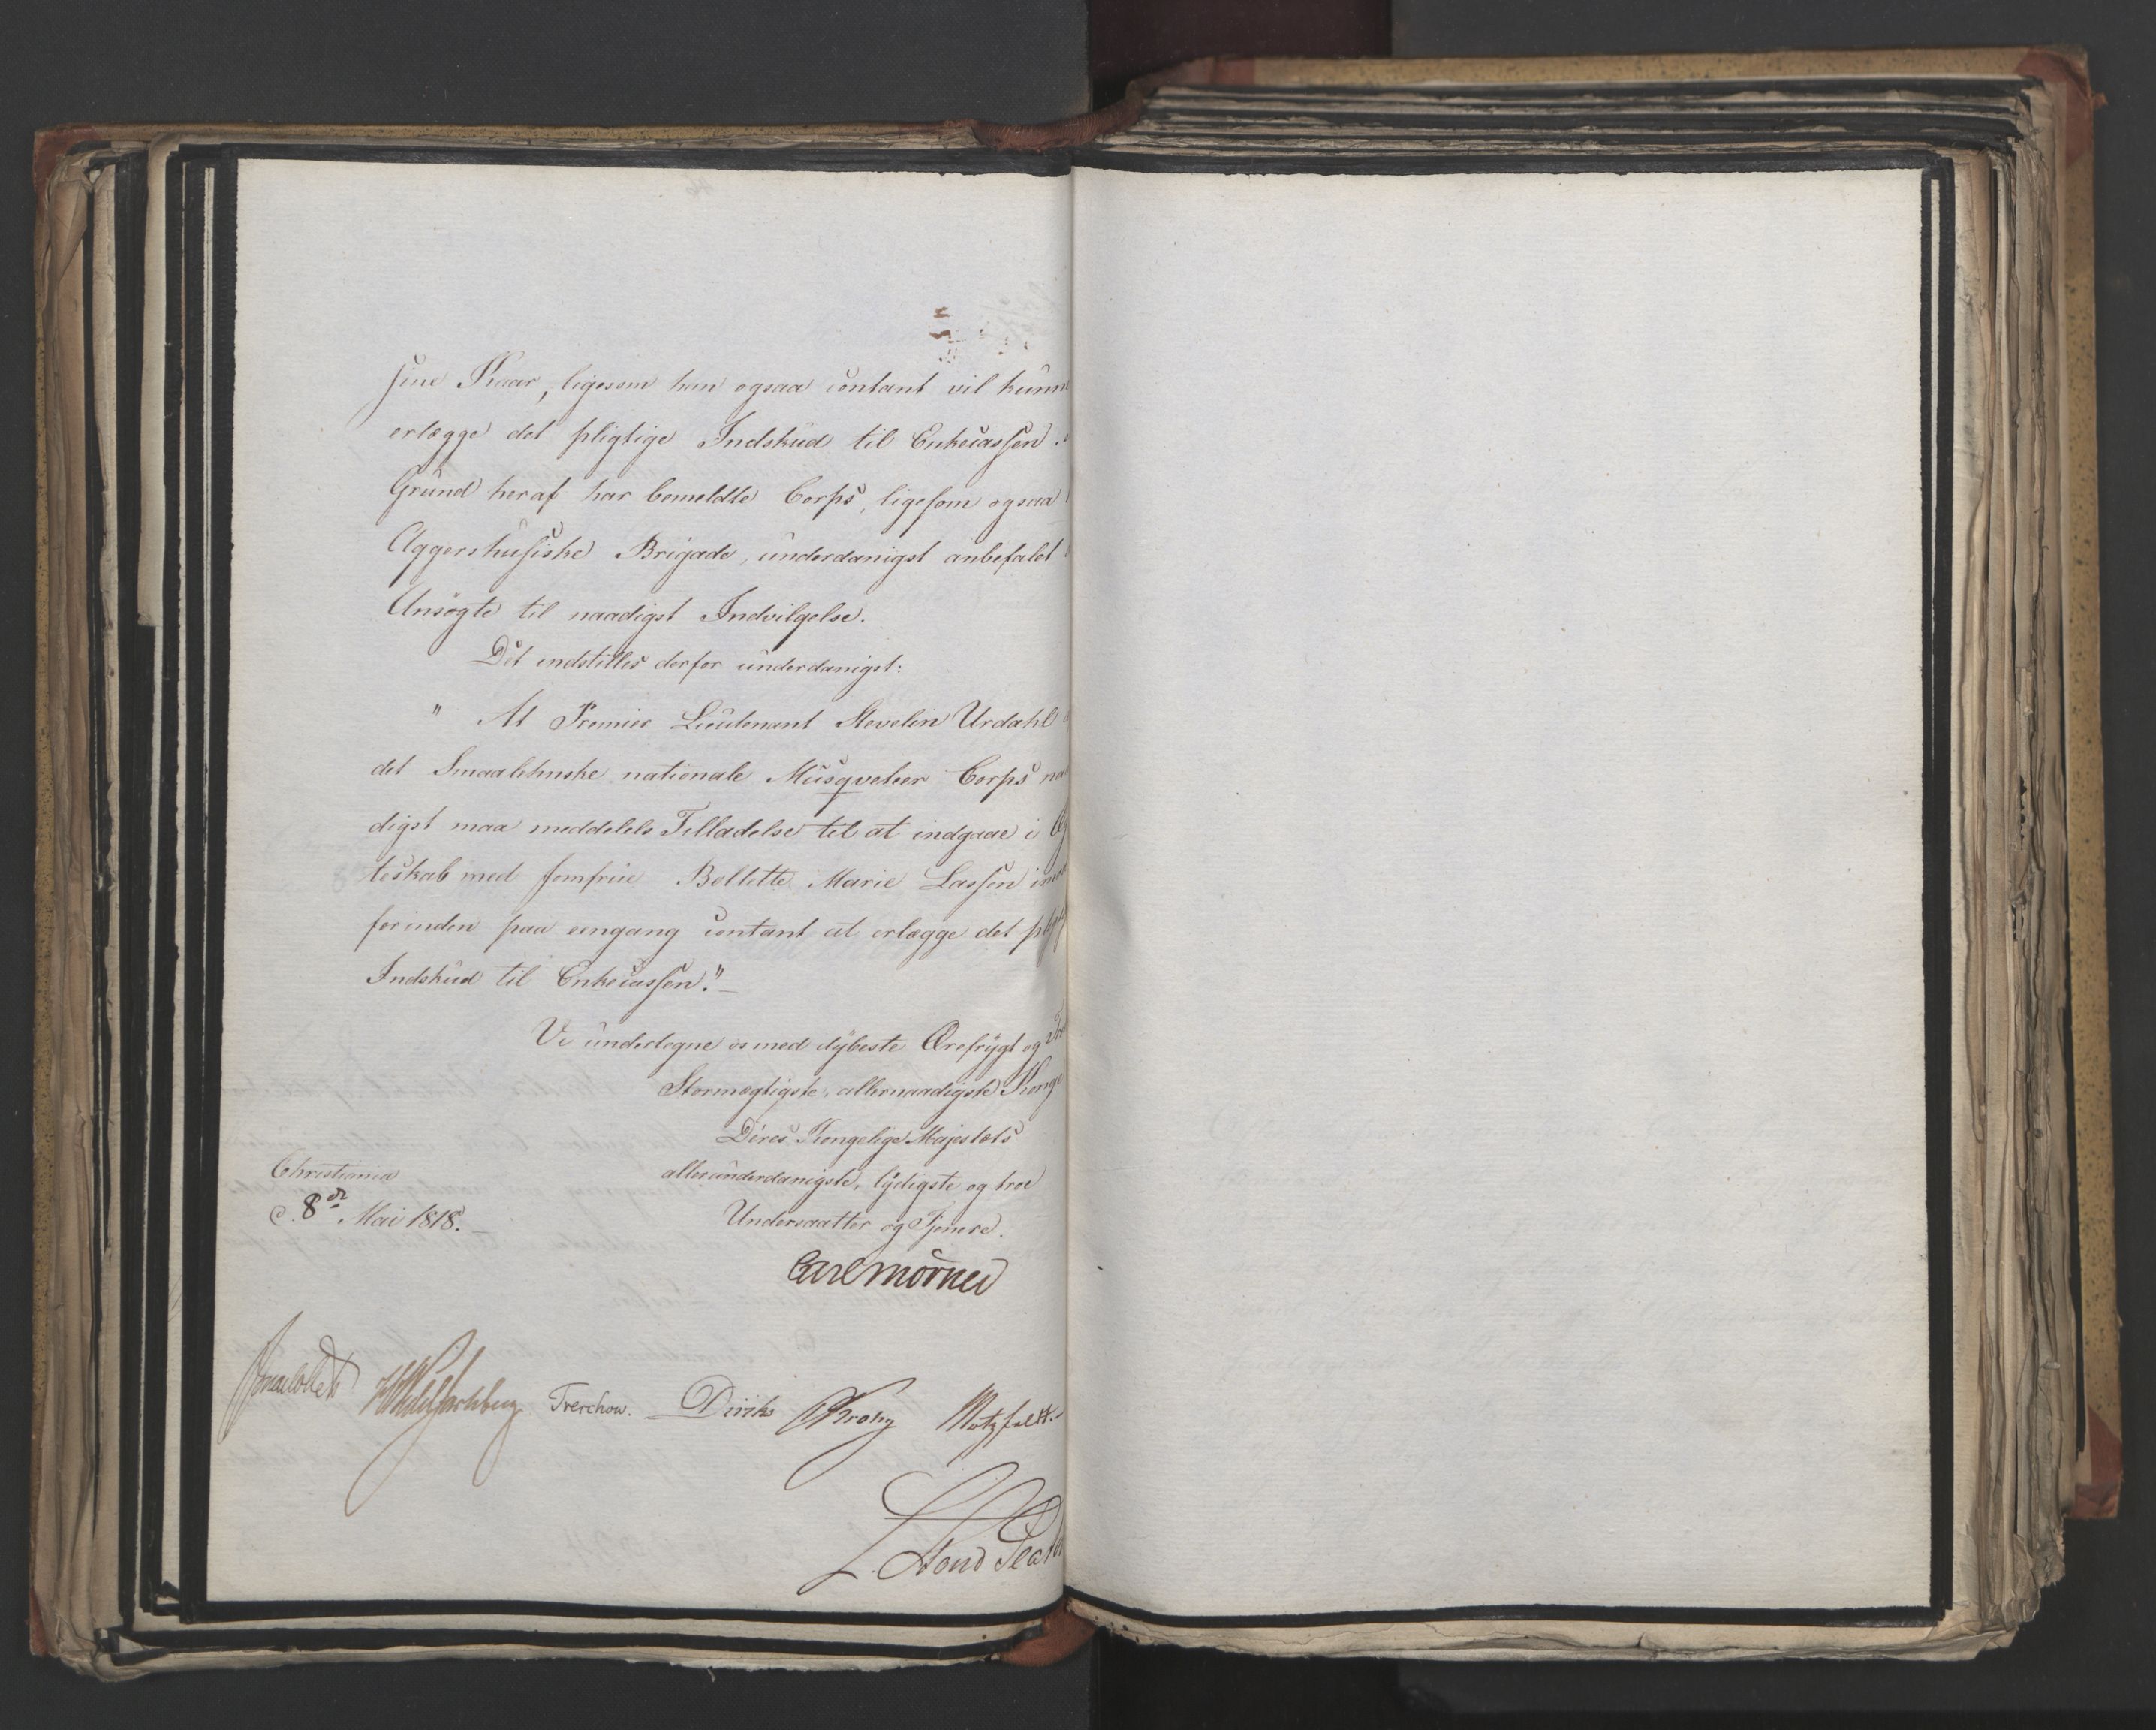 sine Kaar, ligesom han ogsaa contant vil kunn
erlægge det pligtige Indskud til Enkecassen.
Grund heraf har bemeldte Corps, ligesom ogsaa
Aggershusiske Brigade, underdanigst anbefalet
Ansøgte til naadigst Indvilgelse.
Det indstilles derfor underdanigst:
" At Premier Lieutenant Stevelin Urdahl
det Smaalehnske nationale Musqveteer Corps naa
digst maa meddeles Tilladelse til at indgaae i Æg
teskab med Jomfrue Bollette Marie Lassen imo
forinden paa eengang contant at erlægge det pligt
Indskud til Enkecassen."
Vi undertegne os med dybeste Ærefrygt og Tro
Stormægtigste, allernaadigste Konge
Deres Kongelige Majestæts
allerunderdanigste, lydigste og troe
Undersaatter og Tjenere.
Christiania
d. 8de Mai 1818.
Carl Mörner
Treschow. Diriks Krohg Motzfeldt
L. Stoud Plat